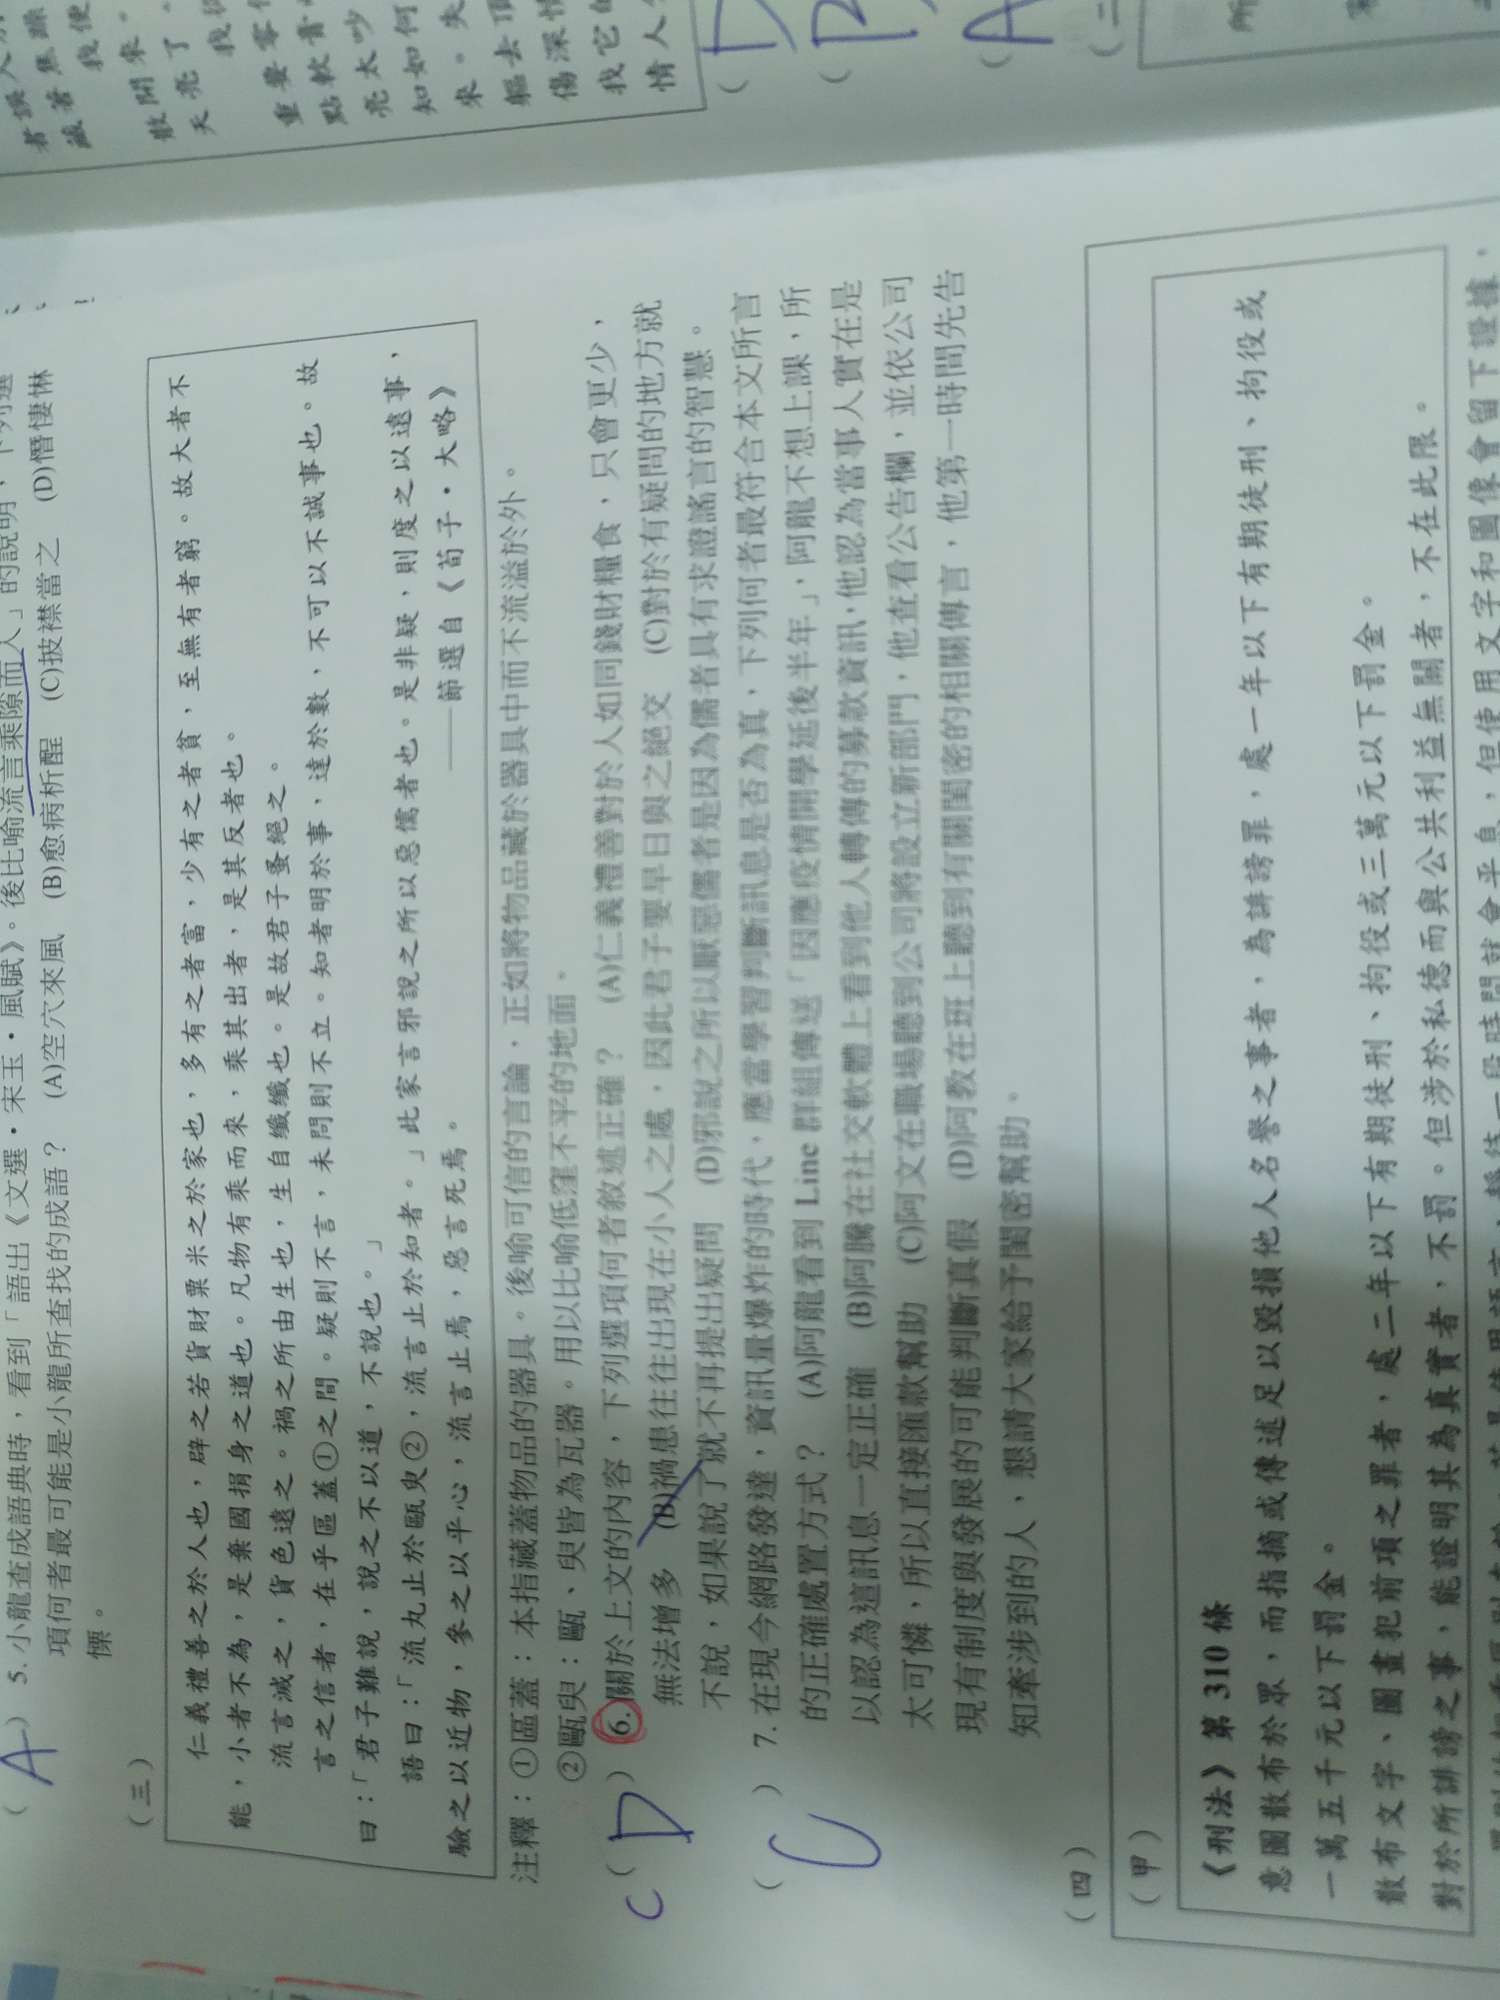 ( A ) 5. 小龍查成語典時，看到「語出《文選・宋玉・風賦》。後比喻流言乘隙而入」的說明，下列選
項何者最可能是小龍所查找的成語？ (A)空穴來風 (B)愈病析酲 (C)披襟當之 (D)憯悽惏
慄。
（三）
仁義禮善之於人也，辟之若貨財粟米之於家也，多有之者富，少有之者貧，至無有者窮。故大者不
能，小者不為，是棄國捐身之道也。凡物有乘而來，乘其出者，是其反者也。
流言滅之，貨色遠之。禍之所由生也，生自纖纖也。是故君子蚤絕之。
言之信者，在乎區蓋①之間。疑則不言，未問則不立。知者明於事，達於數，不可以不誠事也。故
曰：「君子難說，說之不以道，不說也。」
語曰：「流丸止於甌臾②，流言止於知者。」此家言邪說之所以惡儒者也。是非疑，則度之以遠事，
驗之以近物，參之以平心，流言止焉，惡言死焉。
——節選自《荀子・大略》
注釋：①區蓋：本指藏蓋物品的器具。後喻可信的言論，正如將物品藏於器具中而不流溢於外。
②甌臾：甌、臾皆為瓦器。用以比喻低窪不平的地面。
C ( D ) 6. 關於上文的內容，下列選項何者敘述正確？ (A)仁義禮善對於人如同錢財糧食，只會更少，
無法增多 (B)禍患往往出現在小人之處，因此君子要早日與之絕交 (C)對於有疑問的地方就
不說，如果說了就不再提出疑問 (D)邪說之所以厭惡儒者是因為儒者具有求證謠言的智慧。
( C ) 7. 在現今網路發達，資訊量爆炸的時代，應當學習判斷訊息是否為真，下列何者最符合本文所言
的正確處置方式？ (A)阿龍看到 Line 群組傳送「因應疫情開學延後半年」，阿龍不想上課，所
以認為這訊息一定正確 (B)阿騰在社交軟體上看到他人轉傳的募款資訊，他認為當事人實在是
太可憐，所以直接匯款幫助 (C)阿文在職場聽到公司將設立新部門，他查看公告欄，並依公司
現有制度與發展的可能判斷真假 (D)阿教在班上聽到有關閨密的相關傳言，他第一時間先告
知牽涉到的人，懇請大家給予閨密幫助。
（四）
（甲）
《刑法》第 310 條
意圖散布於眾，而指摘或傳述足以毀損他人名譽之事者，為誹謗罪，處一年以下有期徒刑、拘役或
一萬五千元以下罰金。
散布文字、圖畫犯前項之罪者，處二年以下有期徒刑、拘役或三萬元以下罰金。
對於所誹謗之事，能證明其為真實者，不罰。但涉於私德而與公共利益無關者，不在此限。
一段時間就會平息，但使用文字和圖像會留下證據，